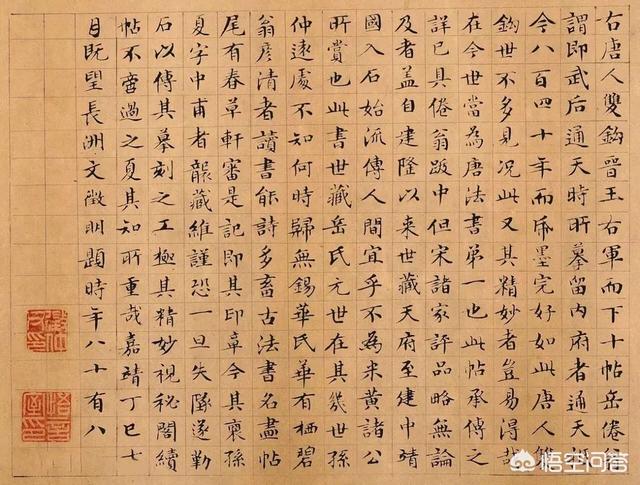 右唐人雙鈎晉王右軍而下十帖岳倦翁
謂即武后通天時所摹留內府者通天
今八百四十年而紙墨完好如此唐人雙
鈎世不多見況此又其精妙者豈易得哉
在今世當為唐法書第一也此帖承傳之
詳已具倦翁跋中但宋諸家評品略無論
及者蓋自建隆以來世藏天府至建中靖
國入石始流傳人間宜乎不為米黃諸公
所賞也此書世藏岳氏元世在其幾世孫
仲遠處不知何時歸無錫華氏華有栖碧
翁彥清者讀書能詩多畜古法書名畫帖
尾有春草軒審是記即其印章今其裔孫
夏字中甫者襲藏維謹恐一旦失墜遂勒
石以傳其摹刻之工極其精妙視秘閣續
帖不啻過之夏其知所重哉嘉靖丁巳七
月既望長洲文徵明題時年八十有八
悟空问答